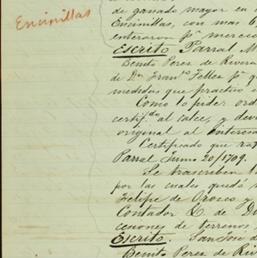 Encinillas
de ganado mayor en
Encinillas, con mas 6
enteraron pr merced
Escrito Parral M
Benito Perez de Rivera
de Dn Franco Tellez pr q
medidas que practico e
Como lo pide ord
al calce, y deve
original al
Certificado que
Parral Junio 20/1709.
Se trascriben
por las cuales quedó
Felipe de Orozco y
Contador &. de Du
cesiones de terrenos
Escrito. San José d
Benito Perez de Riv